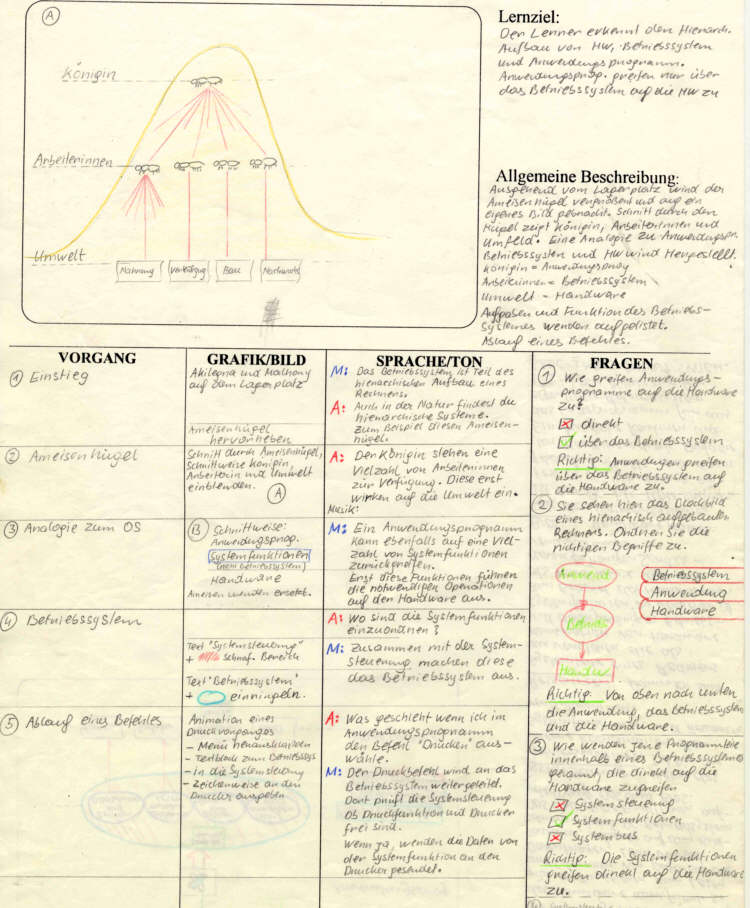 A
Königin
Arbeiterinnen
Umwelt
Nahrung
Verteidigung
Bau
Nachwuchs
Lernziel:
Der Lerner erkennt den Hierarch.
Aufbau von HW, Betriebssystem
und Anwendungsprogramm.
Anwendungsprog. greifen nur über
das Betriebssystem auf die HW zu
Allgemeine Beschreibung:
Ausgehend vom Lagerplatz wird der
Ameisenhügel vergrößert und auf ein
eigenes Bild gebracht. Schnitt durch den
Hügel zeigt Königin, Arbeiterinnen und
Umfeld. Eine Analogie zu Anwendungspr.
Betriebssystem und HW wird Hergestellt.
Königin = Anwendungsprog
Arbeiterinnen = Betriebssystem
Umwelt - Hardware
Aufgaben und Funktion des Betriebs-
systemes werden aufgelistet.
Ablauf eines Befehles.
VORGANG
① Einstieg
② Ameisenhügel
③ Analogie zum OS
④ Betriebssystem
⑤ Ablauf eines Befehles
GRAFIK/BILD
auf dem Lagerplatz
Ameisenhügel
hervorheben
Schnitt durch Ameisenhügel,
Schrittweise Königin,
Arbeiterin und Umwelt
einblenden.
A
B Schrittweise:
Anwendungsprog.
Systemfunktionen
(nicht Betriebssystem)
Hardware
Ameisen werden ersetzt.
Text "Systemsteuerung"
+ schraf. Bereich
Text "Betriebssystem"
+ einringeln.
Animation eines
Druckvorganges
- Menü herausklappen
- Textblock zum Betriebssys
- In die Systemsteuerung
- Zeichenweise an den
Drucker ausgeben
SPRACHE/TON
M: Das Betriebssystem ist Teil des
hierarchischen Aufbau eines
Rechners.
A: Auch in der Natur findest du
hierarchische Systeme.
Zum Beispiel diesen Ameisen-
hügel.
A: Der Königin stehen eine
Vielzahl von Arbeiterinnen
zur Verfügung. Diese erst
wirken auf die Umwelt ein.
Musik:
M: Ein Anwendungsprogramm
kann ebenfalls auf eine Viel-
zahl von Systemfunktionen
zurückgreifen.
Erst diese Funktionen führen
die notwendigen Operationen
auf der Hardware aus.
A: Wo sind die Systemfunktionen
einzuordnen?
M: Zusammen mit der System-
steuerung machen diese
das Betriebssystem aus.
A: Was geschieht wenn ich im
Anwendungsprogramm
den Befehl "Drucken" aus-
wähle.
M: Der Druckbefehl wird an das
Betriebssystem weitergeleitet.
Dort prüft die Systemsteuerung
Ob Druckfunktion und Drucker
frei sind.
Wenn ja, werden die Daten von
der Systemfunktion an den
Drucker gesendet.
FRAGEN
① Wie greifen Anwendungs-
programme auf die Hardware
zu?
direkt
über das Betriebssystem
Richtig: Anwendungen greifen
über das Betriebssystem auf
die Hardware zu.
② Sie sehen hier das Blockbild
eines hierarchisch aufgebauten
Rechners. Ordnen Sie die
richtigen Begriffe zu.
Anwend
Betriebs
Hardw
Betriebssystem
Anwendung
Hardware
Richtig: Von oben nach unten
die Anwendung, das Betriebssystem
und die Hardware.
③ Wie werden jene Programmteile
innerhalb eines Betriebssystemes
genannt, die direkt auf die
Hardware zugreifen
Systemsteuerung
Systemfunktionen
Systembus
Richtig: Die Systemfunktionen
greifen direkt auf die Hardware
zu.